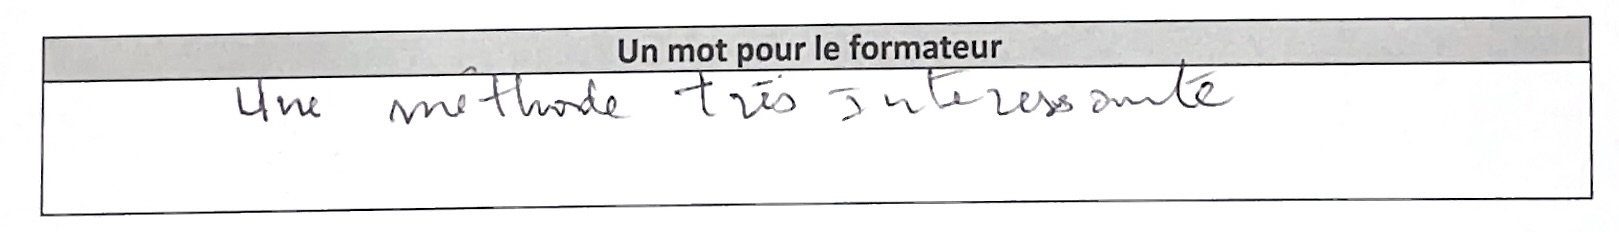 Un mot pour le formateur
Une méthode très interessante